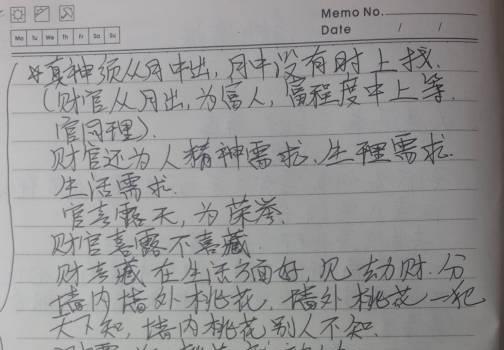 Memo No.
Mo Tu We Th Fr Sa Su
Date / /
☆真神须从月中出，月中没有时上找.
(财官从月出，为富人，富程度中上等.
官同理).
财官还为人精神需求、生理需求.
生活需求.
官喜露天，为荣誉.
财官喜露不喜藏
财喜藏在生活方面好，见劫财.分
墙内墙外桃花，墙外桃花一犯
天下知，墙内桃花别人不知.